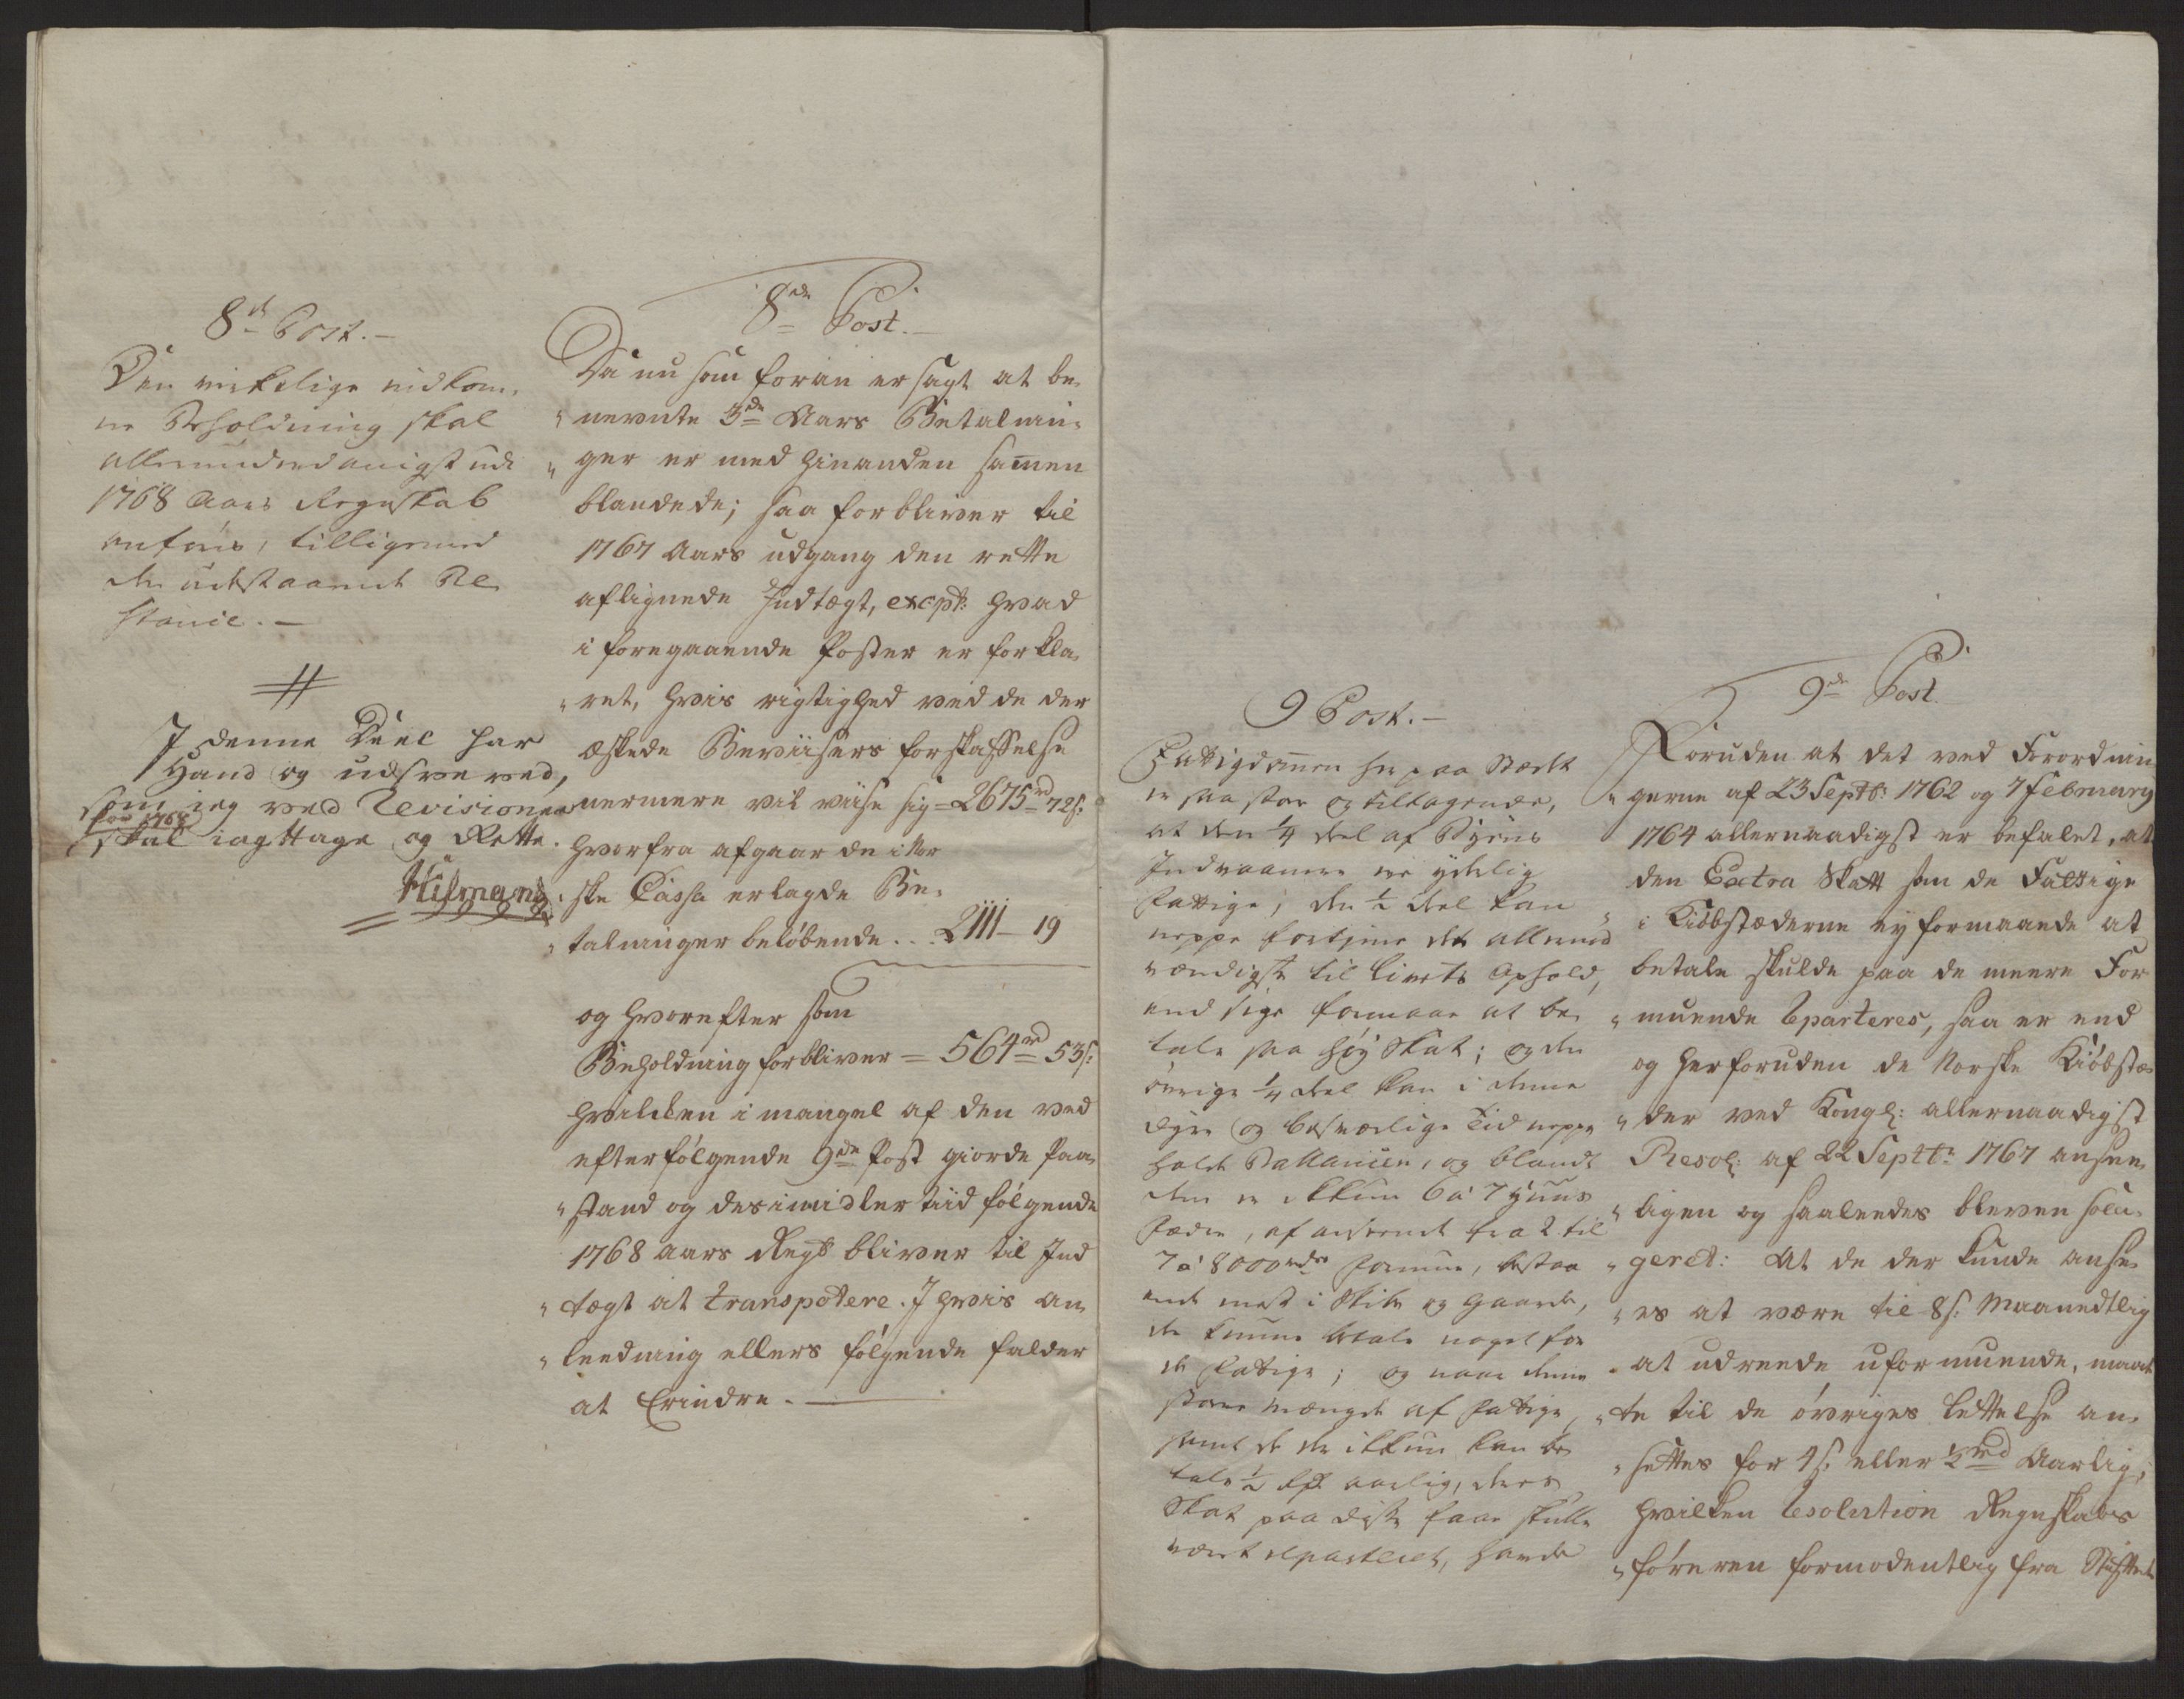 8de Post.-
Den virkelige udkom-
ne Beholdning skal
allerunderdanigst udi
1768 Aars Regnskab
anføris, tilligemed
den udestaaende Re
stance.-
I denne Deel har
Hand og udsvæved,
som ieg ved Revisionen
for 1768
skal iagttage og Rette.
Hilmang
8de Post.
Da nu som foran er sagt at be-
nevnte 3de Aars Betalnin-
ger er med hinanden samen
blandede; saa forbliver til
1767 Aars udgang den rette
aflignede Indtægt, except: hvad
i foregaaende Poster er forkla-
ret, hvis rigtighed ved de der
æskede Beviisers forskaffelse
nermere vil viise sig = 2675rd 72s:
hvorfra afgaar de i Nor
ske Cassa erlagde Be-
talninger beløbende .. 2111 - 19
og hvorefter som
Beholdning forbliver = 564rd 53s:
hvilcken i mangel af den ved
efterfølgende 9de Post giorde Paa-
stand og des imidlertiid følgende
1768 aars Regnsk: bliver til Ind
tægt at transportere. I hvis an-
leedning ellers følgende falder
at Erindre.
9 Post.-
Fattigdommen her paa Stædet
er saa stor og tiltagende,
at den 1/4 deel af Byens
Indvaanere ere ydelig
fattige; den 1/2 deel kan
neppe fortjene det allernød
vændigste til Livets Ophold,
end sige formaar at be-
tale saa høy Skat; og den
øvrige 1/4 deel kan i denne
dyre og besværlige Tid neppe
holde Ballancen, og blandt
dem er ikkun 6 á 7 Huus
fædre, af anseende fra 2 til
7 á 8000rdr Formue, bestaa
ende mest i Skibe og Gaarde,
der kunne betale noget for
de fattige; og naar denne
store Mængde af fattige,
samt de der ikkun kan be
tale 1/2 rd aarlig, deres
Skat paa disse faae skulle
vært reparteret, havde
9de Post
Foruden at det ved Forordnin
gerne af 23 Septbr: 1762 og 7 February
1764 allernaadigst er befalet, at
den Extra Skatt som de Fattige
i Kiøbstæderne ey formaaede at
betale skulde paa de meere For
muende reparteres, saa er end
og herforuden de Norske Kiøbstæ-
der ved Kongl: allernaadigst
Resol: af 22 Septbr: 1767 ansee-
ligen og saaledes bleven soula-
geret: At de der kunde ansee-
es at være til 8s: Maanedtlig
at udreede uformuende, maat
te til de øvriges Lettelse an-
settes for 4s: eller 1/2 rd Aarlig;
hvilken resolution Regnskabs
føreren formodentlig fra Stifftet